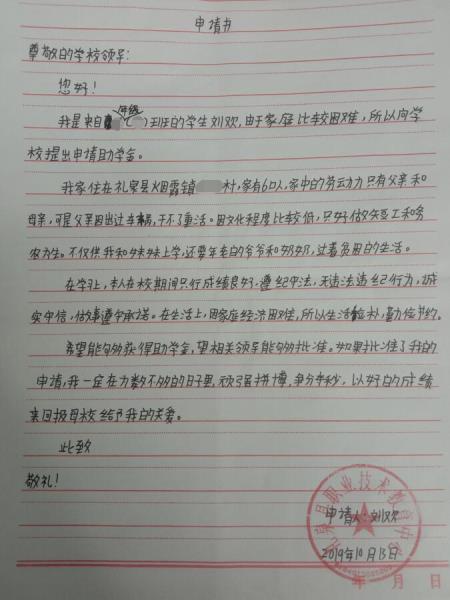 申请书
尊敬的学校领导:
您好!
年级
我是来自()班的学生刘欢,由于家庭比较困难,所以向学
校提出申请助学金。
我家住在礼泉县烟霞镇村,家有6口人,家中的劳动力只有父亲和
母亲,可是父亲因出过车祸,干不了重活。因文化程度比较低,只好做短工和务
农为生。不仅供我和妹妹上学,还要年老的爷爷和奶奶,过着贫困的生活。
在学习上,本人在校期间品行成绩良好,遵纪守法,无违法违纪行为,诚
实守信,做事遵守承诺。在生活上,因家庭经济困难,所以生活俭朴,勤俭节约。
希望能够获得助学金,望相关领导能够批准。如果批准了我的
申请,我一定在为数不多的日子里,顽强拼搏,争分夺秒,以好的成绩
来回报母校给予我的关爱。
此致
敬礼!
礼泉县职业技术教育中心
申请人:刘欢
2019年10月13日
年 月 日